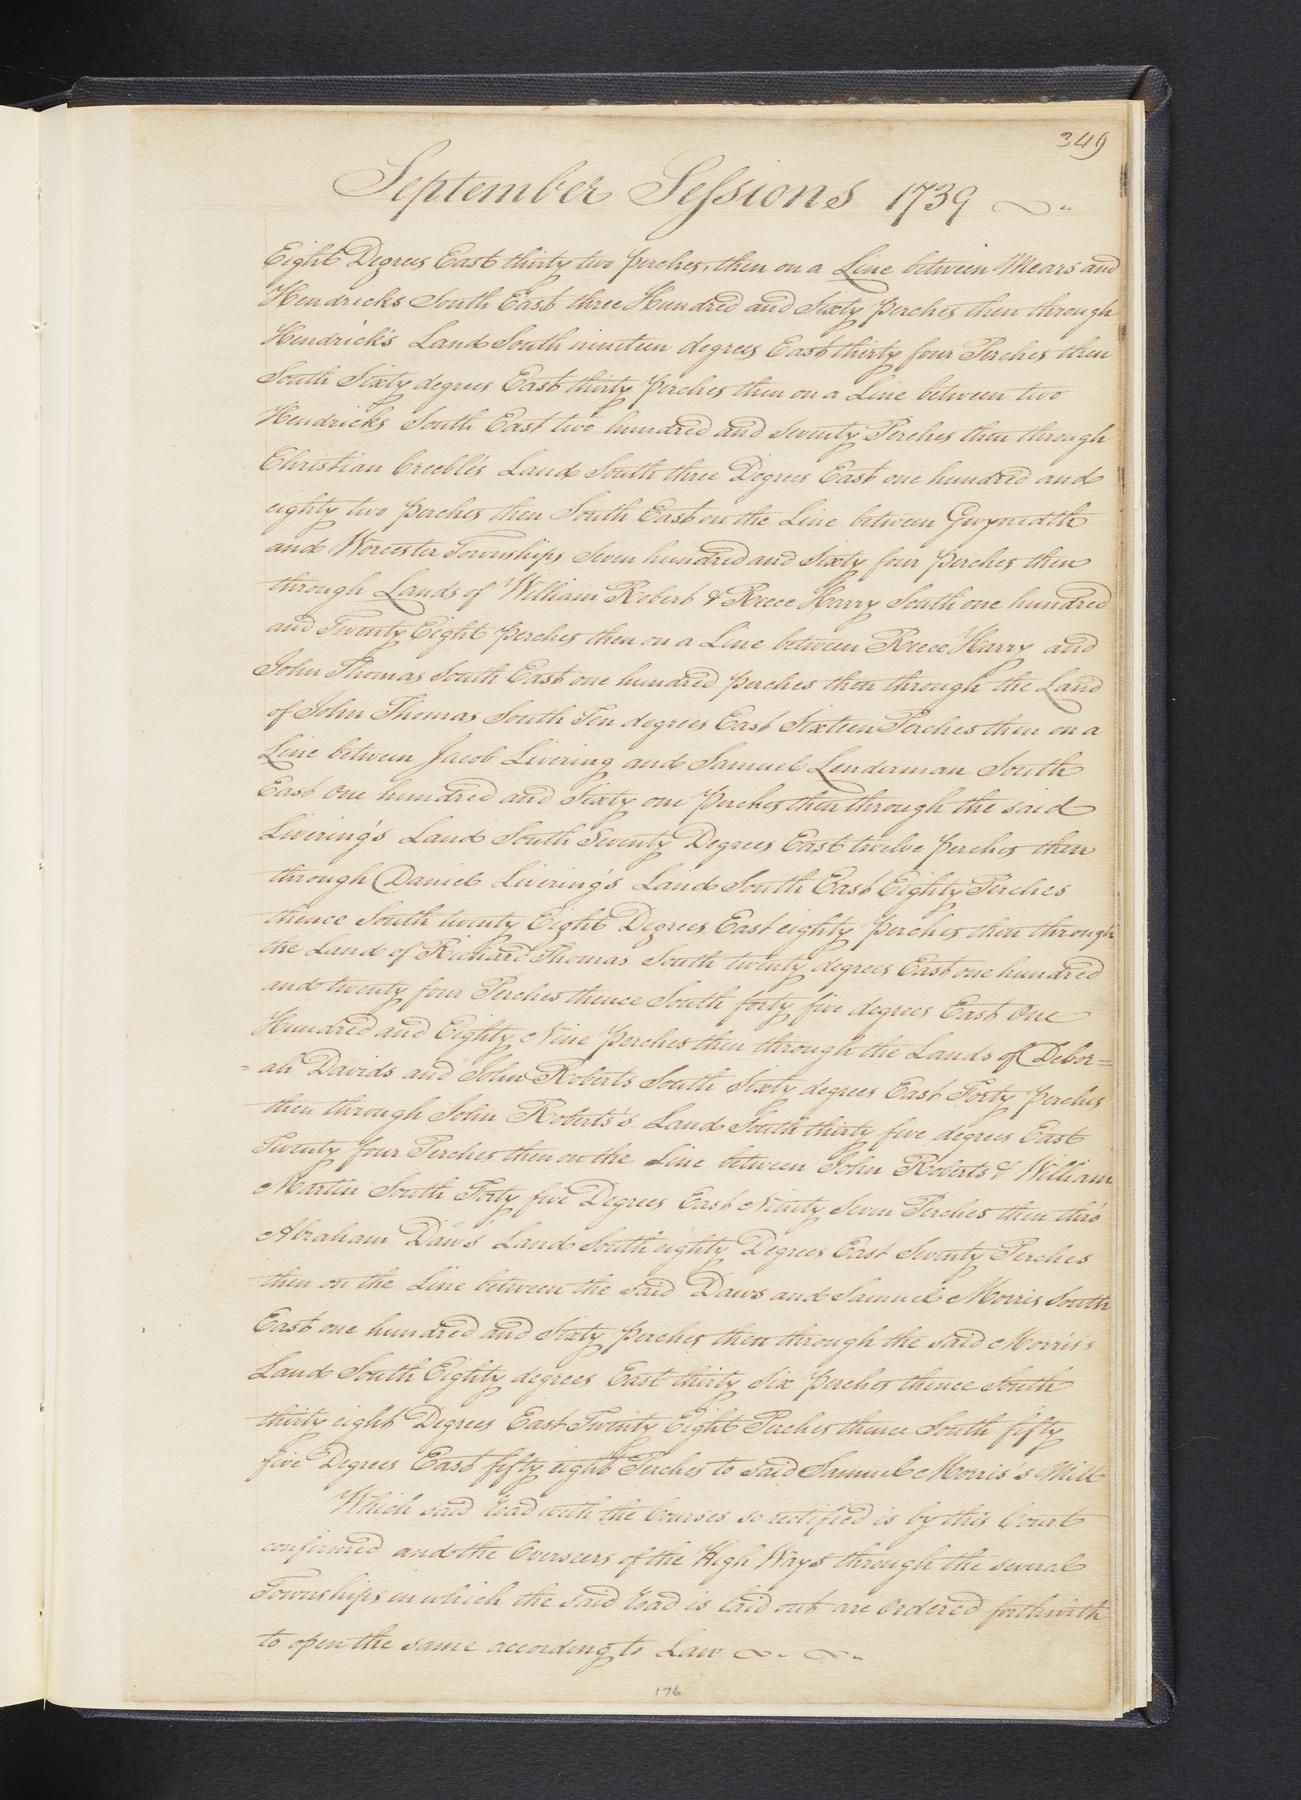 349
September Sessions 1739
Eight Degrees East thirty two perches, then on a Line between Mears and
Hendricks South East three Hundred and Sixty perches then through
Hendrick's Land South nineteen degrees East thirty four Perches then
South Sixty degrees East thirty perches then on a Line between two
Hendricks South East two hundred and Seventy Perches then through
Christian Creeble's Land South three Degrees East one hundred and
eighty two perches then South East on the Line between Gwynedth
and Worcester Townships Seven hundred and Sixty four perches then
through Lands of William Robert & Reece Harry South one hundred
and Twenty Eight perches then on a Line between Reece Harry and
John Thomas South East one hundred perches then through the Land
of John Thomas South Ten degrees East Sixteen Perches then on a
Line between Jacob Livering and Samuel Lenderman South
East One hundred and Sixty one perches then through the said
Livering's Land South Seventy Degrees East twelve perches then
through Daniel Livering's Land South East Eighty Perches
thence South twenty Eight Degrees East eighty perches then through
the Land of Richard Thomas South twenty degrees East one hundred
and twenty four Perches thence South forty five degrees East One
Hundred and Eighty Nine perches then through the Lands of Debor=
=ah Davids and John Roberts South Sixty degrees East Forty perches
then through John Roberts's Land South thirty five degrees East
Twenty four Perches then on the Line between John Roberts & William
Martin South Forty five Degrees East Ninety Seven Perches then thro
Abraham Daws' Land South eighty Degrees East Seventy Perches
then on the Line between the said Daws and Samuel Morris South
East one hundred and Sixty perches then through the said Morris's
Land South Eighty degrees East thirty Six perches thence South
thirty eight Degrees East Twenty Eight Perches thence South fifty
five Degrees East fifty eight Perches to said Samuel Morris's Mill
Which said Road with the Courses so rectified is by this Court
confirmed and the Overseers of the High Ways through the several
Townships in which the said Road is laid out are Ordered forthwith
to open the same according to Law
176